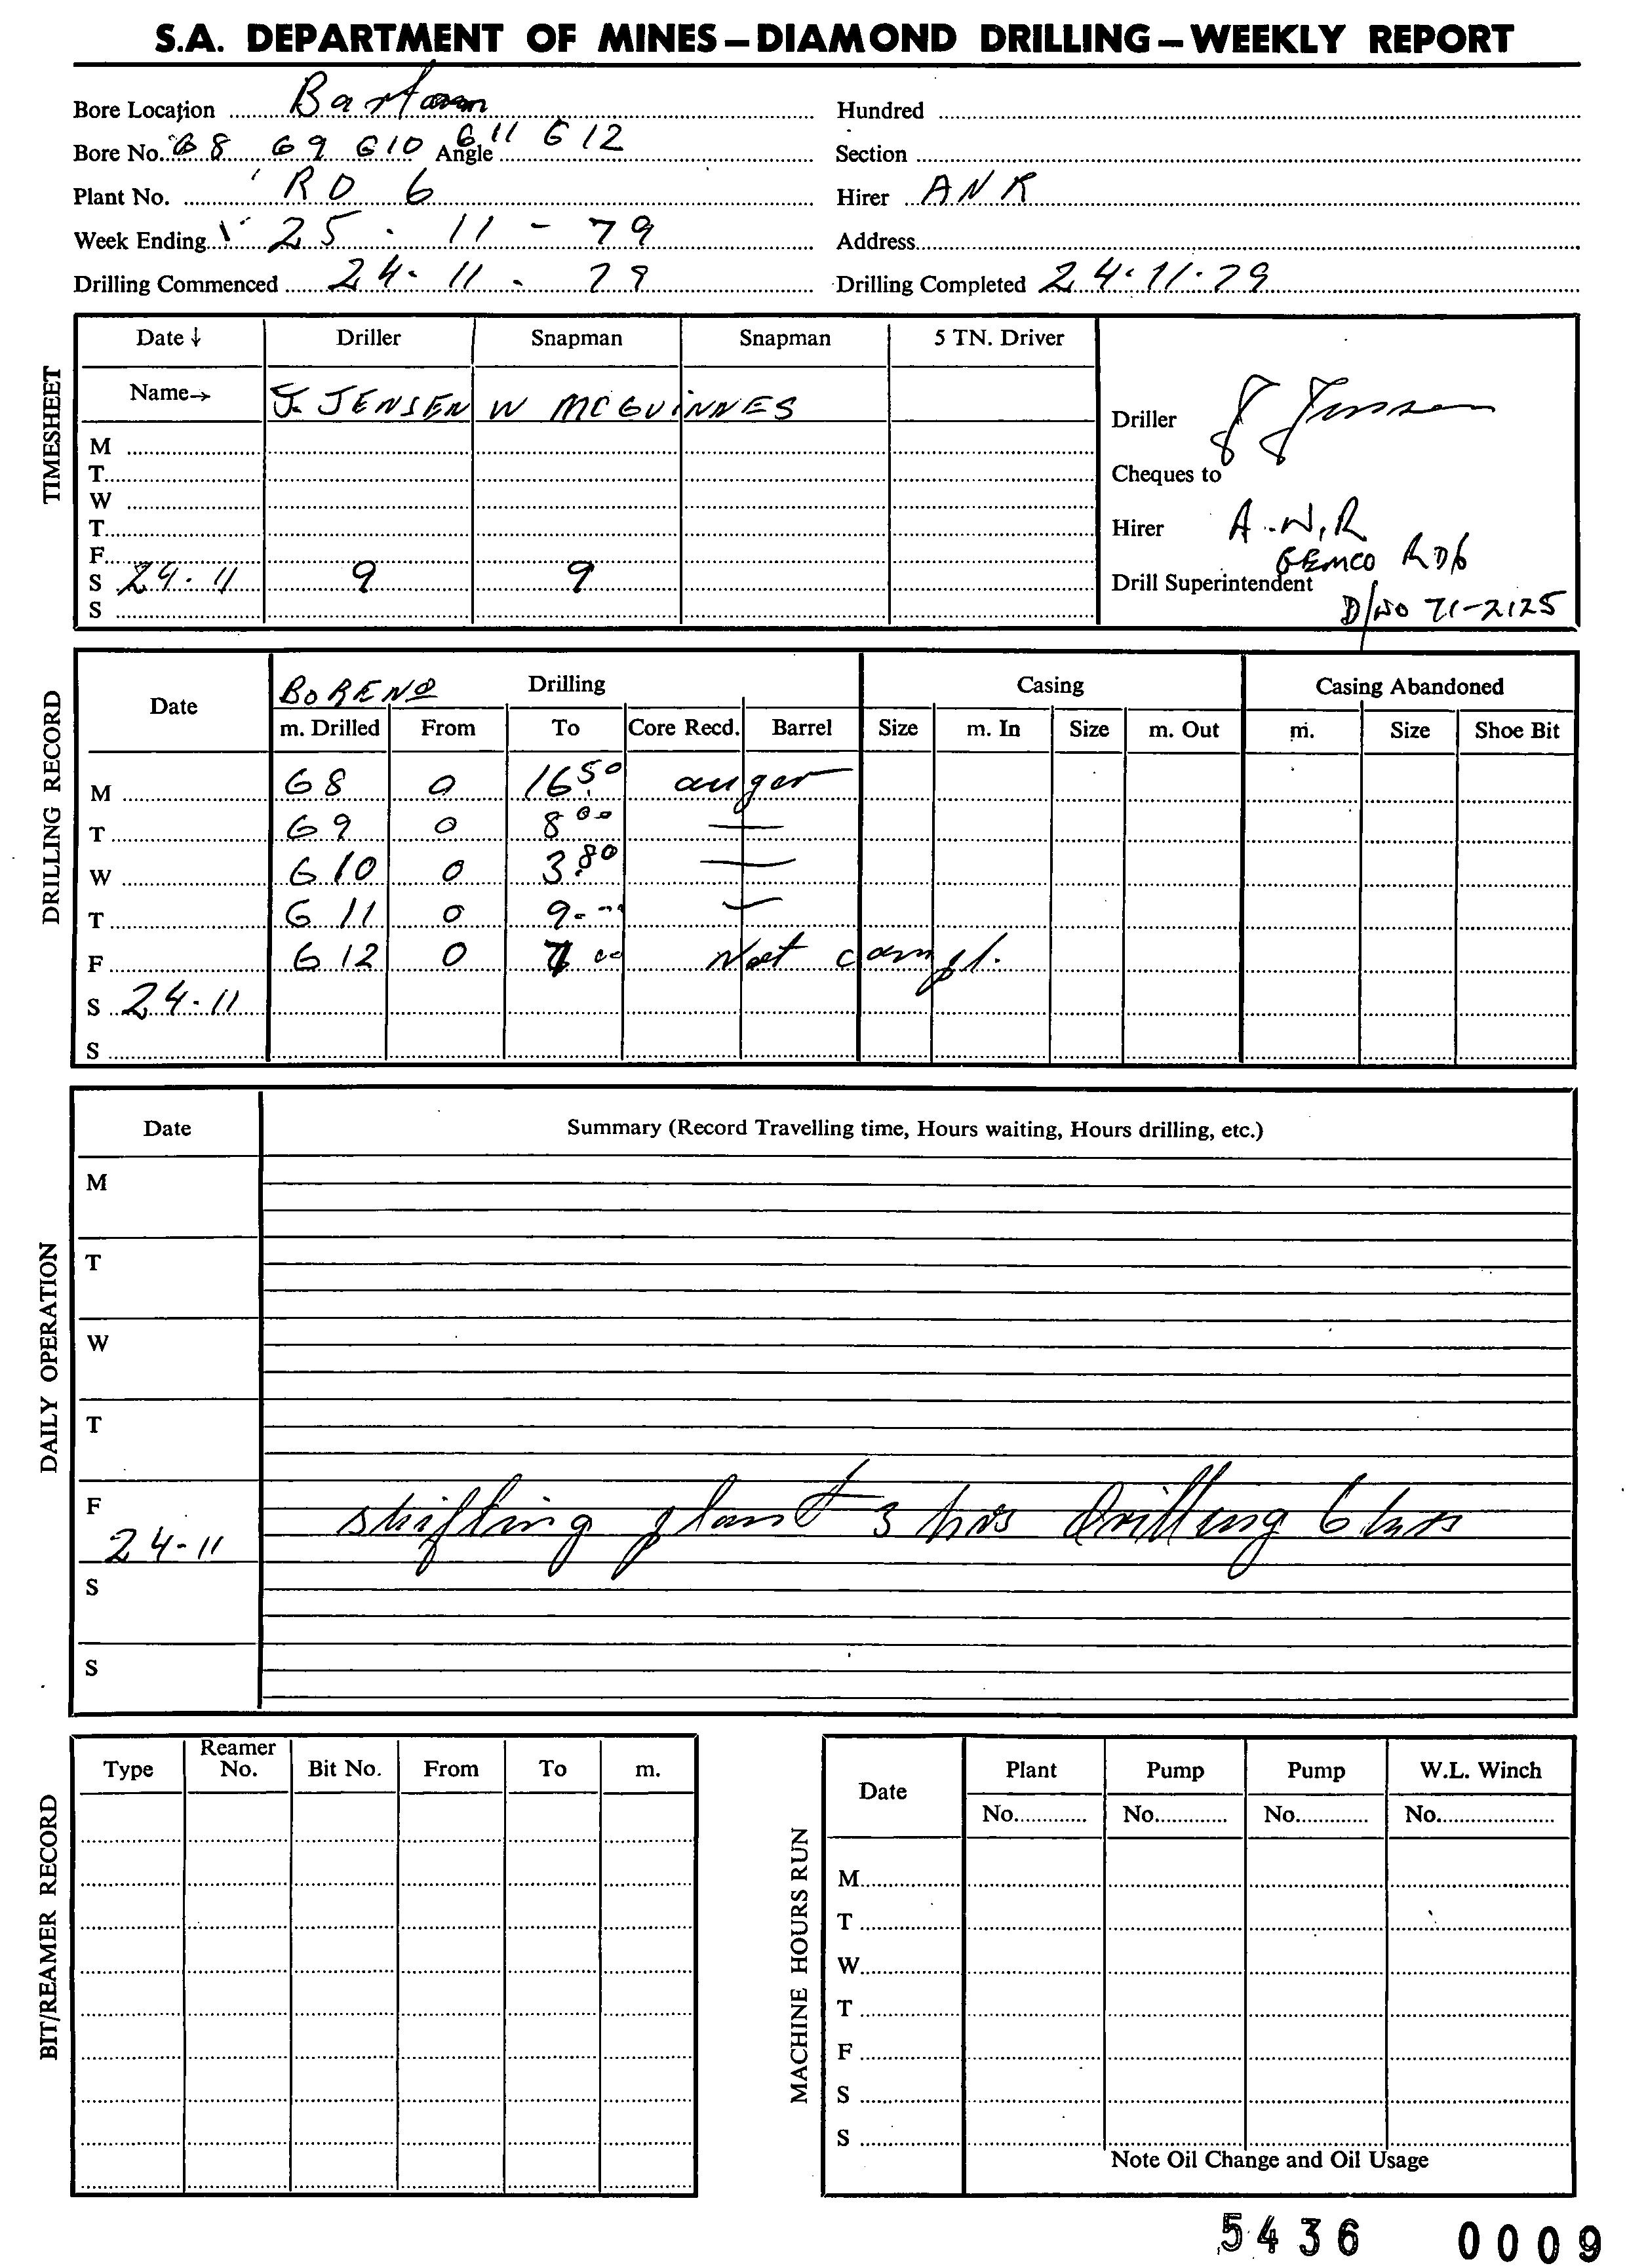 S.A. DEPARTMENT OF MINES – DIAMOND DRILLING – WEEKLY REPORT
Bore Location Hundred
Bore No. G8 G9 G10 G11 G12 Angle Section
Plant No. RD 6 Hirer ANR
Week Ending 25 . 11 - 79 Address
Drilling Commenced 24. 11 . 79 Drilling Completed 24.11.79
TIMESHEET
Date ↓ Driller Snapman Snapman 5 TN. Driver
Name→ J. JENSEN W MCGUINNES
Driller J Jensen
M
T
W
T
F
S 24.11 9 9
S
Cheques to
Hirer A.N.R
GEMCO RD6
Drill Superintendent
D/NO 71-2125
DRILLING RECORD
Date BORE NO Drilling Casing Casing Abandoned
m. Drilled From To Core Recd. Barrel Size m. In Size m. Out m. Size Shoe Bit
M G8 0 16.50 auger
T G9 0 8 00 —
W G10 0 3.80 —
T G11 0 9.-- —
F G12 0 7 00 Not compl.
S 24.11
S
DAILY OPERATION
Date Summary (Record Travelling time, Hours waiting, Hours drilling, etc.)
M
T
W
T
F shifting plant 3 hrs Drilling 6 hrs
24-11
S
S
BIT/REAMER RECORD
Type Reamer No. Bit No. From To m.
MACHINE HOURS RUN
Date Plant Pump Pump W.L. Winch
No. No. No. No.
M
T
W
T
F
S
S
Note Oil Change and Oil Usage
5436 0009